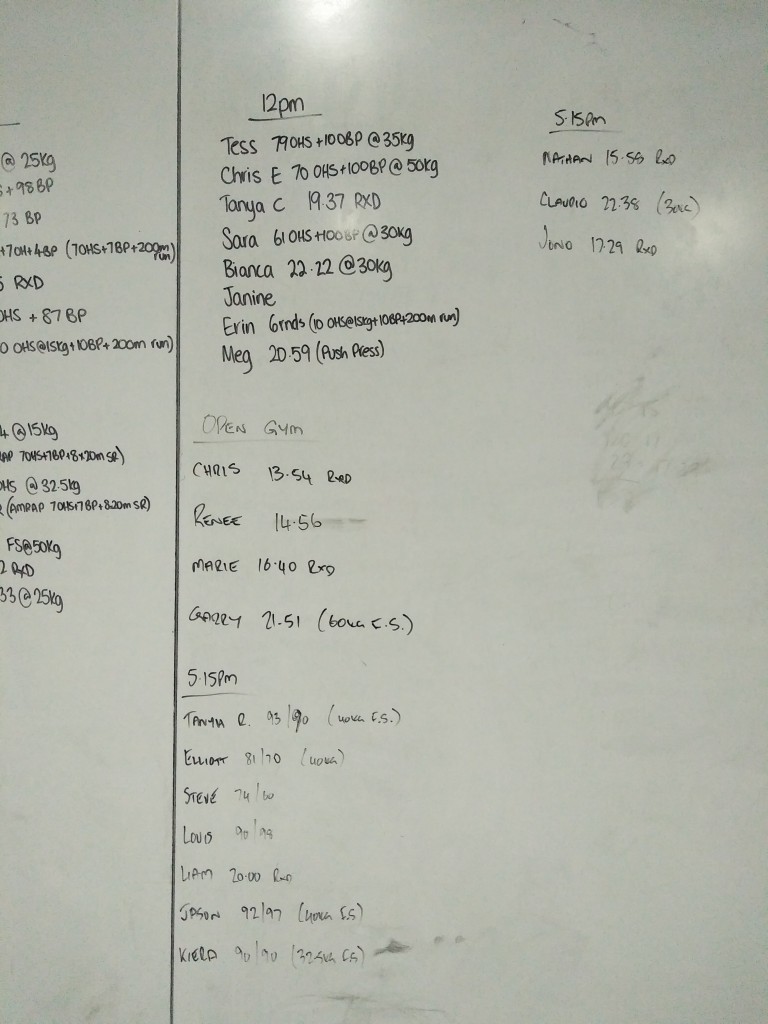 @ 25kg
+ 98 BP
73 BP
+7OH+4BP (7OHS+7BP+200m run)
RXD
OHS + 87 BP
0 OHS@15kg+10BP+200m run)
4 @15kg
AP 7OHS+7BP+8x20m SR)
OHS @ 32.5kg
(AMRAP 7OHS+7BP+8x20m SR)
FS@50kg
2 RXD
33 @ 25kg
12pm
Tess 79 OHS+100BP @35kg
Chris E 70 OHS+100BP @ 50kg
Tanya C 19.37 RXD
Sara 61 OHS+100BP @30kg
Bianca 22.22 @30kg
Janine
Erin 6rnds (10 OHS@15kg+10BP+200m run)
Meg 20.59 (Push Press)
OPEN GYM
CHRIS 13.54 RXD
RENEE 14.56
MARIE 16.40 RXD
GARRY 21.51 (60KG F.S.)
5.15PM
TANYA R. 93/90 (40KG F.S.)
ELLIOTT 81/70 (40KG)
STEVE 74/60
LOUIS 90/98
LIAM 20.00 RXD
JASON 92/97 (40KG F.S)
KIERA 90/90 (32.5KG F.S)
5.15pm
NATHAN 15.58 RXD
CLAUDIO 22.38 (30KG)
JONO 17.29 RXD